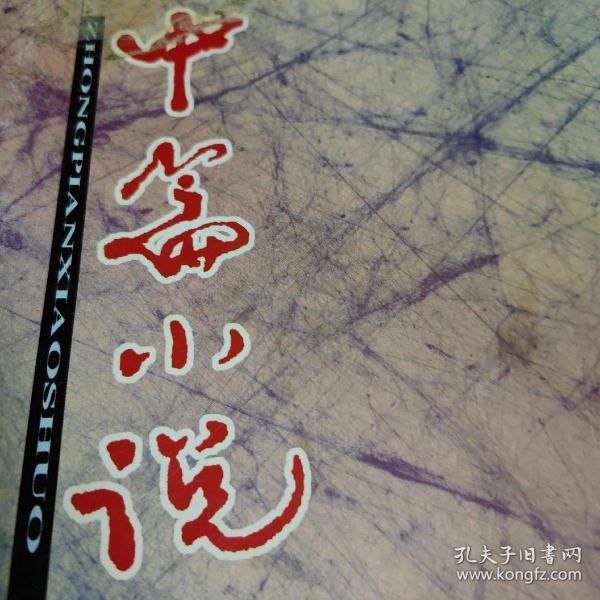 中篇小说
ZHONGPIANXIAOSHUO
孔夫子旧書网
www.kongfz.com